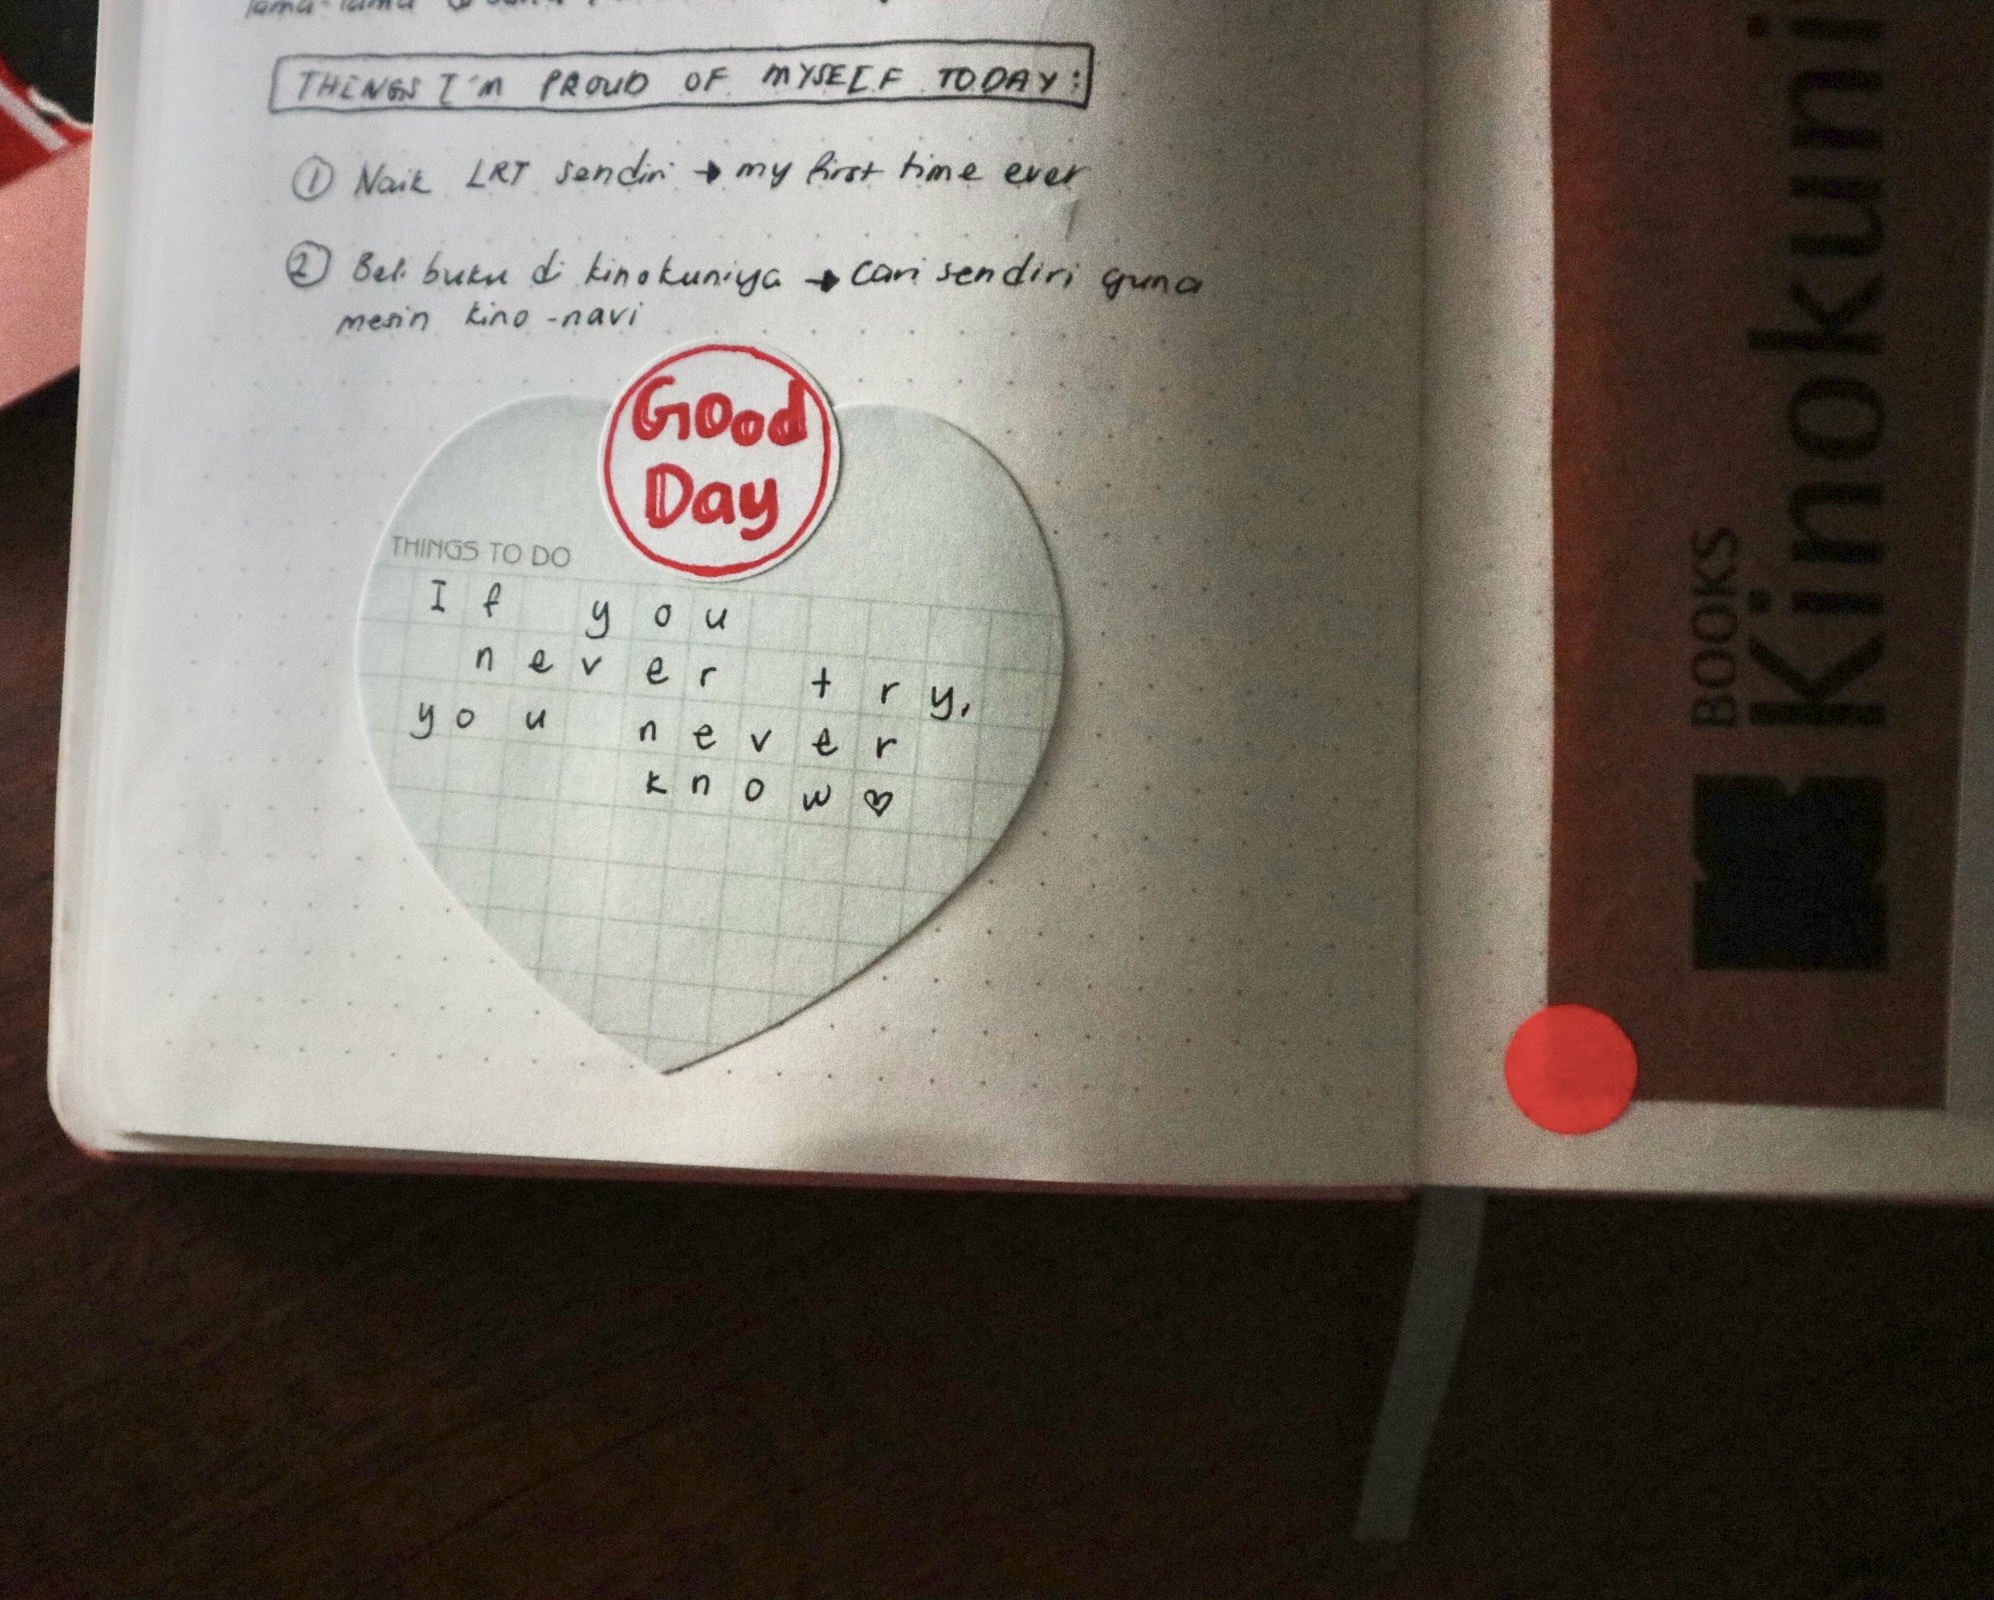 THINGS I'M PROUD OF MYSELF TODAY:
① Naik LRT sendiri → my first time ever
② Beli buku di kinokuniya → cari sendiri guna
mesin kino-navi
Good
Day
THINGS TO DO
If you
never try,
you never
know ♡
BOOKS
Kinokuni